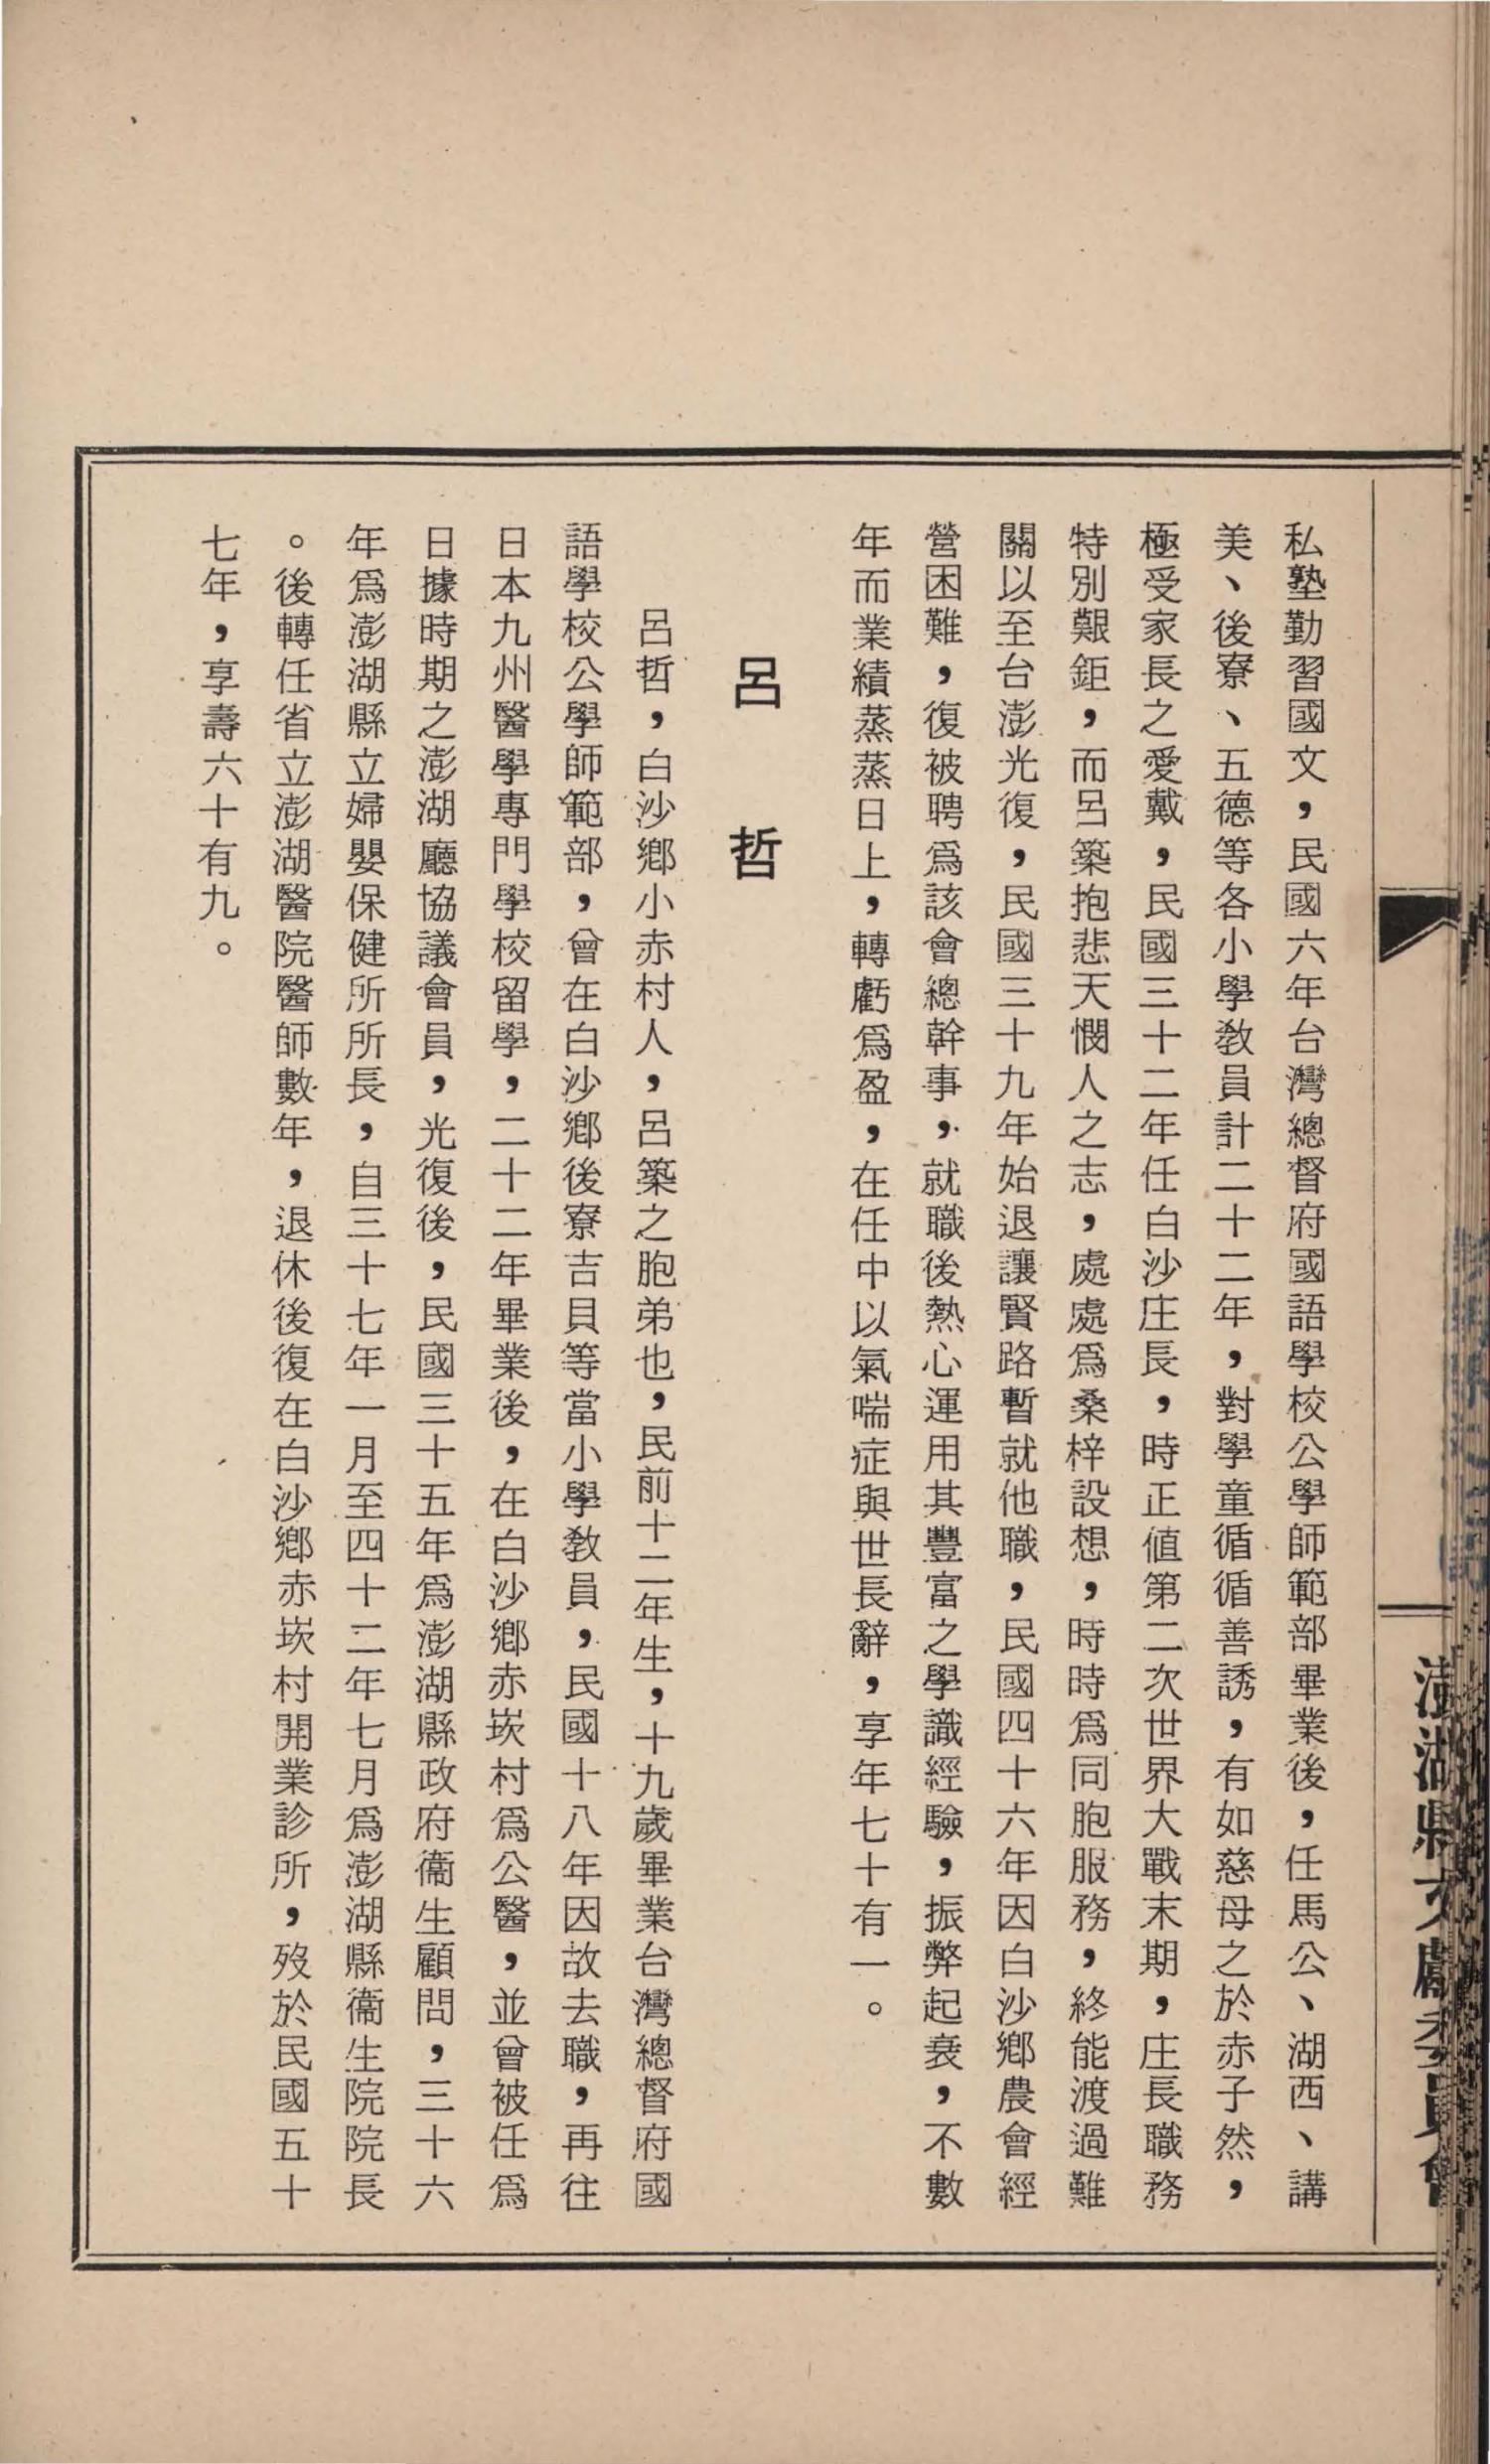 私塾勤習國文，民國六年台灣總督府國語學校公學師範部畢業後，任馬公、湖西、講
美、後寮、五德等各小學教員計二十二年，對學童循循善誘，有如慈母之於赤子然，
極受家長之愛戴，民國三十二年任白沙庄長，時正值第二次世界大戰末期，庄長職務
特別艱鉅，而呂築抱悲天憫人之志，處處爲桑梓設想，時時爲同胞服務，終能渡過難
關以至台澎光復，民國三十九年始退讓賢路暫就他職，民國四十六年因白沙鄉農會經
營困難，復被聘爲該會總幹事，就職後熱心運用其豐富之學識經驗，振弊起衰，不數
年而業績蒸蒸日上，轉虧爲盈，在任中以氣喘症與世長辭，享年七十有一。
呂哲
呂哲，白沙鄉小赤村人，呂築之胞弟也，民前十二年生，十九歲畢業台灣總督府國
語學校公學師範部，曾在白沙鄉後寮吉貝等當小學教員，民國十八年因故去職，再往
日本九州醫學專門學校留學，二十二年畢業後，在白沙鄉赤崁村爲公醫，並曾被任爲
日據時期之澎湖廳協議會員，光復後，民國三十五年爲澎湖縣政府衞生顧問，三十六
年爲澎湖縣立婦嬰保健所所長，自三十七年一月至四十二年七月爲澎湖縣衞生院院長
。後轉任省立澎湖醫院醫師數年，退休後復在白沙鄉赤崁村開業診所，歿於民國五十
七年，享壽六十有九。
澎湖縣文獻委員會